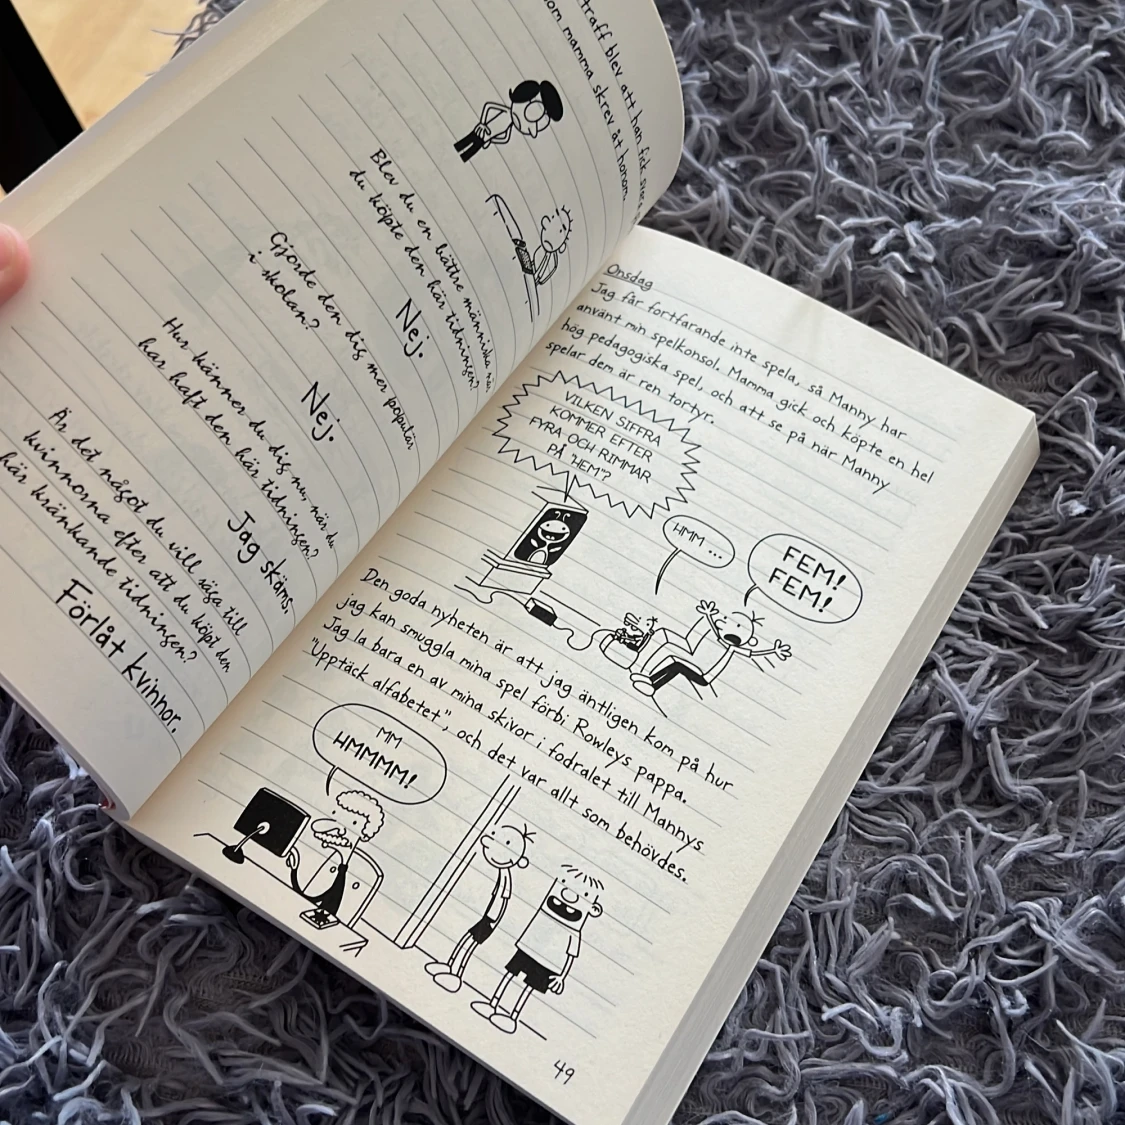 traff blev att han fick
som mamma skrev åt honom.
Blev du en bättre människa när
du köpte den här tidningen?
Nej.
Gjorde den dig mer populär
i skolan?
Nej.
Hur känner du dig nu, när du
har haft den här tidningen?
Jag skäms.
Är det något du vill säga till
kvinnorna efter att du köpt den
här kränkande tidningen?
Förlåt kvinnor.
Onsdag
Jag får fortfarande inte spela, så Manny har
använt min spelkonsol. Mamma gick och köpte en hel
hög pedagogiska spel, och att se på när Manny
spelar dem är ren tortyr.
VILKEN SIFFRA
KOMMER EFTER
FYRA OCH RIMMAR
PÅ "HEM"?
HMM ...
FEM!
FEM!
Den goda nyheten är att jag äntligen kom på hur
jag kan smuggla mina spel förbi Rowleys pappa.
Jag la bara en av mina skivor i fodralet till Mannys
"Upptäck alfabetet", och det var allt som behövdes.
MM
HMMMM!
49